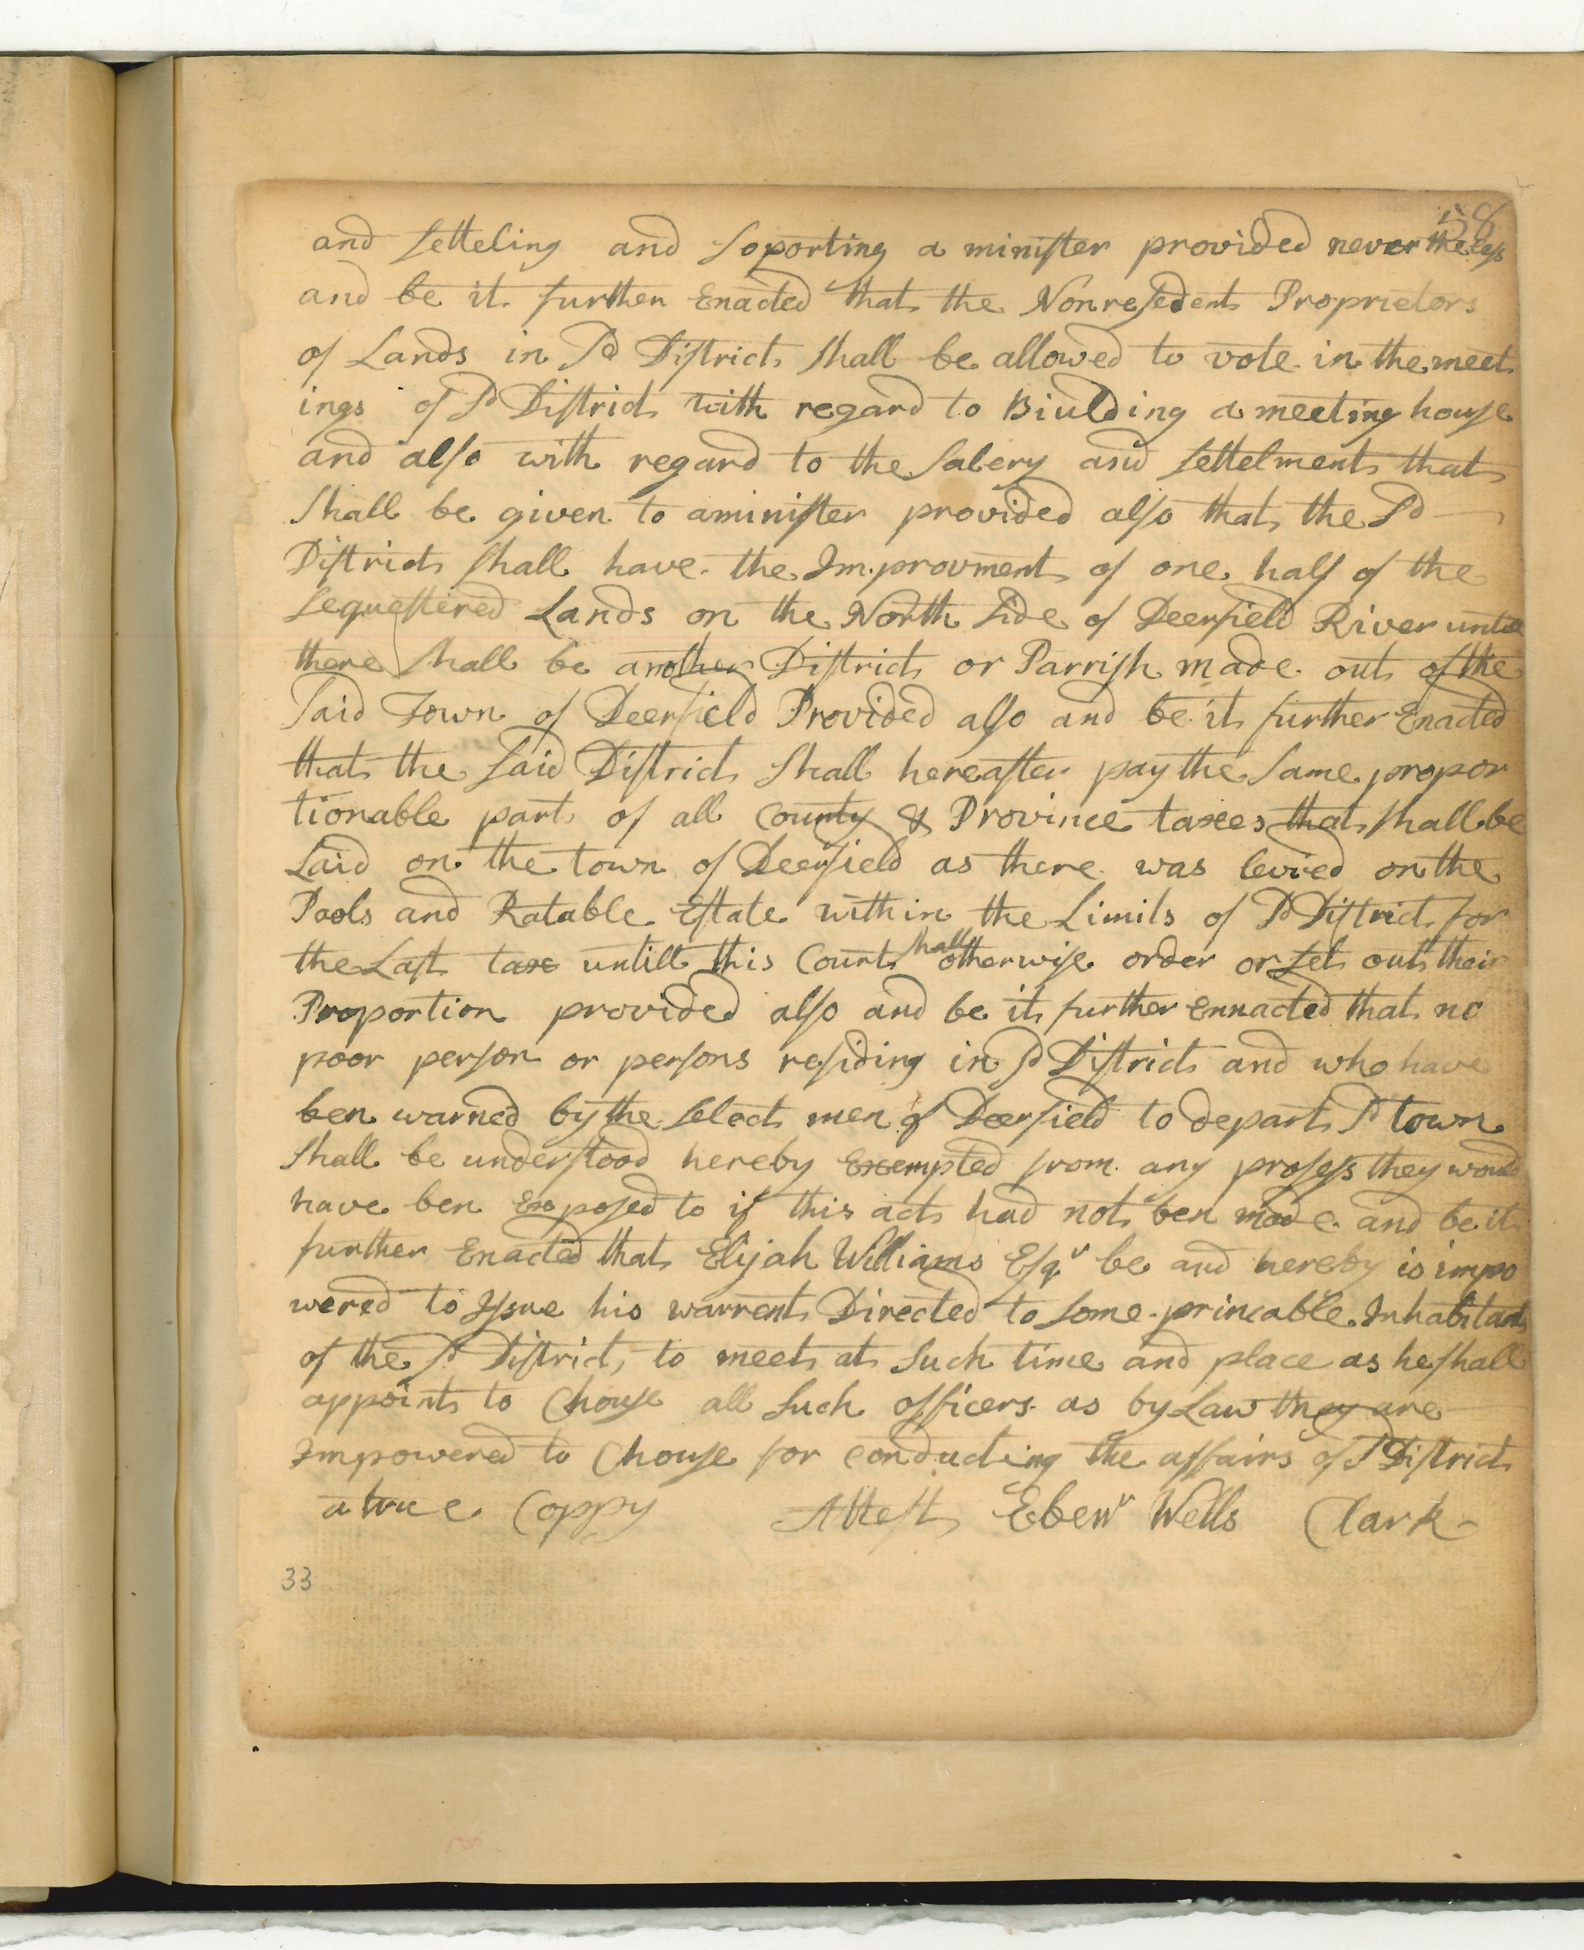 58
and setteling and soporting a minister provided nevertheless
and be it further Enacted that the Nonresedent Proprietors
of Lands in Sd District shall be allowed to vote in the meet
ings of Sd District with regard to Biulding a meeting house
and also with regard to the Salery and settelment that
Shall be given to a minister provided also that the Sd
District shall have the Improvment of one half of the
sequestired Lands on the North side of Deerfield River untill
there shall be another District or Parrish made out of the
said Town of Deerfield Provided also and be it further Enacted
that the said District shall hereafter pay the same propor
tionable part of all County & Province taxes that shall be
Laid on the town of Deerfield as there was levied on the
Pools and Ratable Estate within the Limits of Sd District for
the Last tax untill this Court shall otherwise order or set out their
Proportion provided also and be it further Ennacted that no
poor person or persons residing in Sd District and who have
ben warned by the select men of Deerfield to depart Sd town
shall be understood hereby Exempted from any prosess they would
have ben Exposed to if this act had not ben made and be it
further Enacted that Elijah Williams Esqr be and hereby is impo
wered to Issue his warrent Directed to some princable Inhabitant
of the Sd District, to meet at such time and place as he shall
appoint to Chouse all such officers as by Law they are
Impowered to Chouse for conducting the affairs of Sd District
a true Coppy Attest Ebenr Wells Clark
33